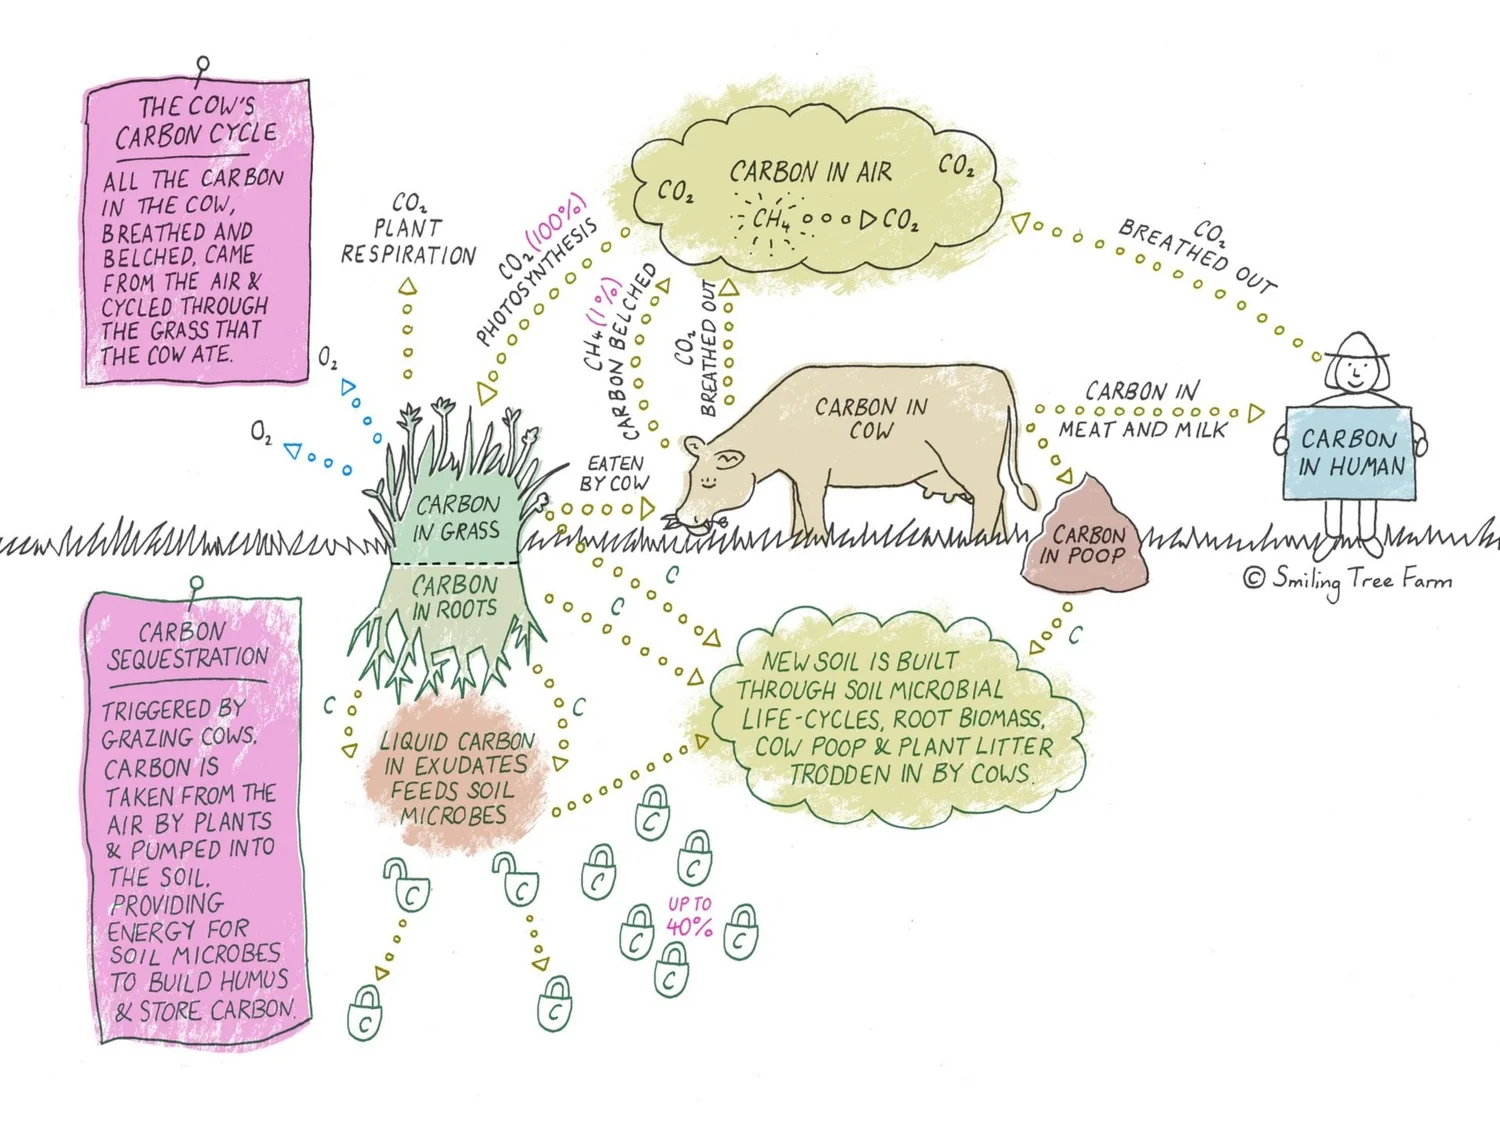 THE COW'S
CARBON CYCLE
ALL THE CARBON
IN THE COW,
BREATHED AND
BELCHED, CAME
FROM THE AIR &
CYCLED THROUGH
THE GRASS THAT
THE COW ATE.
CO₂
PLANT
RESPIRATION
O₂
O₂
CO₂ (100%)
PHOTOSYNTHESIS
CARBON IN AIR
CO₂
CO₂
CH₄
CO₂
CH₄ (1%)
CARBON BELCHED
CO₂
BREATHED OUT
CO₂
BREATHED OUT
CARBON IN
COW
CARBON IN
MEAT AND MILK
CARBON
IN HUMAN
EATEN
BY COW
CARBON
IN GRASS
CARBON
IN POOP
© Smiling Tree Farm
CARBON
IN ROOTS
C
C
C
C
C
CARBON
SEQUESTRATION
TRIGGERED BY
GRAZING COWS.
CARBON IS
TAKEN FROM THE
AIR BY PLANTS
& PUMPED INTO
THE SOIL.
PROVIDING
ENERGY FOR
SOIL MICROBES
TO BUILD HUMUS
& STORE CARBON.
LIQUID CARBON
IN EXUDATES
FEEDS SOIL
MICROBES
NEW SOIL IS BUILT
THROUGH SOIL MICROBIAL
LIFE-CYCLES, ROOT BIOMASS,
COW POOP & PLANT LITTER
TRODDEN IN BY COWS.
C
C
C
C
C
C
UP TO
40%
C
C
C
C